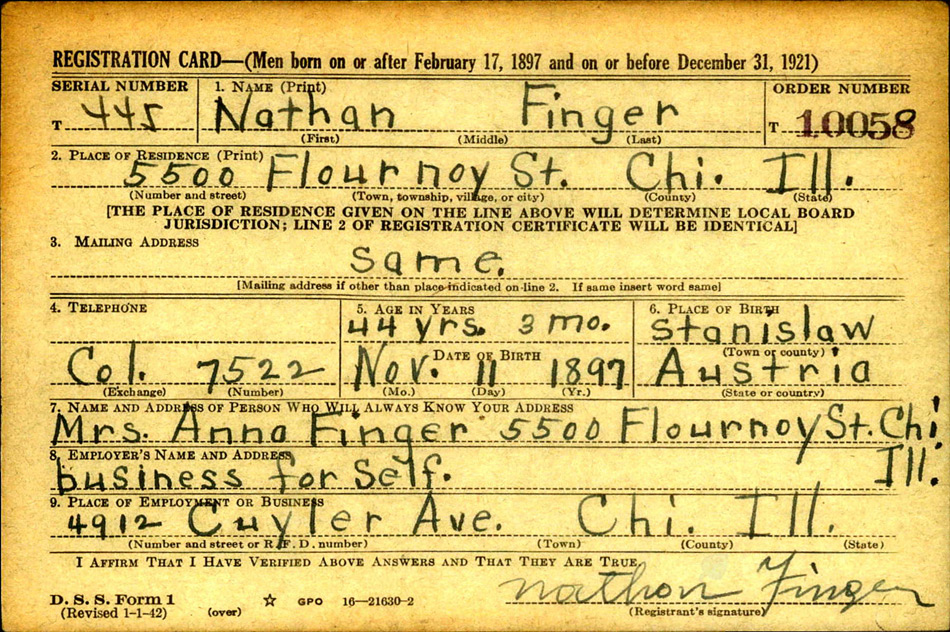 REGISTRATION CARD—(Men born on or after February 17, 1897 and on or before December 31, 1921)
SERIAL NUMBER 1. NAME (Print) ORDER NUMBER
T 445 Nathan Finger T 10058
(First) (Middle) (Last)
2. PLACE OF RESIDENCE (Print)
5500 Flournoy St. Chi. Ill.
(Number and street) (Town, township, village, or city) (County) (State)
[THE PLACE OF RESIDENCE GIVEN ON THE LINE ABOVE WILL DETERMINE LOCAL BOARD
JURISDICTION; LINE 2 OF REGISTRATION CERTIFICATE WILL BE IDENTICAL]
3. MAILING ADDRESS
same.
[Mailing address if other than place indicated on line 2. If same insert word same]
4. TELEPHONE 5. AGE IN YEARS 6. PLACE OF BIRTH
44 yrs. 3 mo. Stanislaw
DATE OF BIRTH (Town or county)
Col. 7522 Nov. 11 1897 Austria
(Exchange) (Number) (Mo.) (Day) (Yr.) (State or country)
7. NAME AND ADDRESS OF PERSON WHO WILL ALWAYS KNOW YOUR ADDRESS
Mrs. Anna Finger 5500 Flournoy St. Chi
8. EMPLOYER'S NAME AND ADDRESS
business for Self. Ill.
9. PLACE OF EMPLOYMENT OR BUSINESS
4912 Cuyler Ave. Chi. Ill.
(Number and street or R. F. D. number) (Town) (County) (State)
I AFFIRM THAT I HAVE VERIFIED ABOVE ANSWERS AND THAT THEY ARE TRUE.
Nathan Finger
D. S. S. Form 1
(Revised 1-1-42) (over) ☆ GPO 16—21630-2 (Registrant's signature)